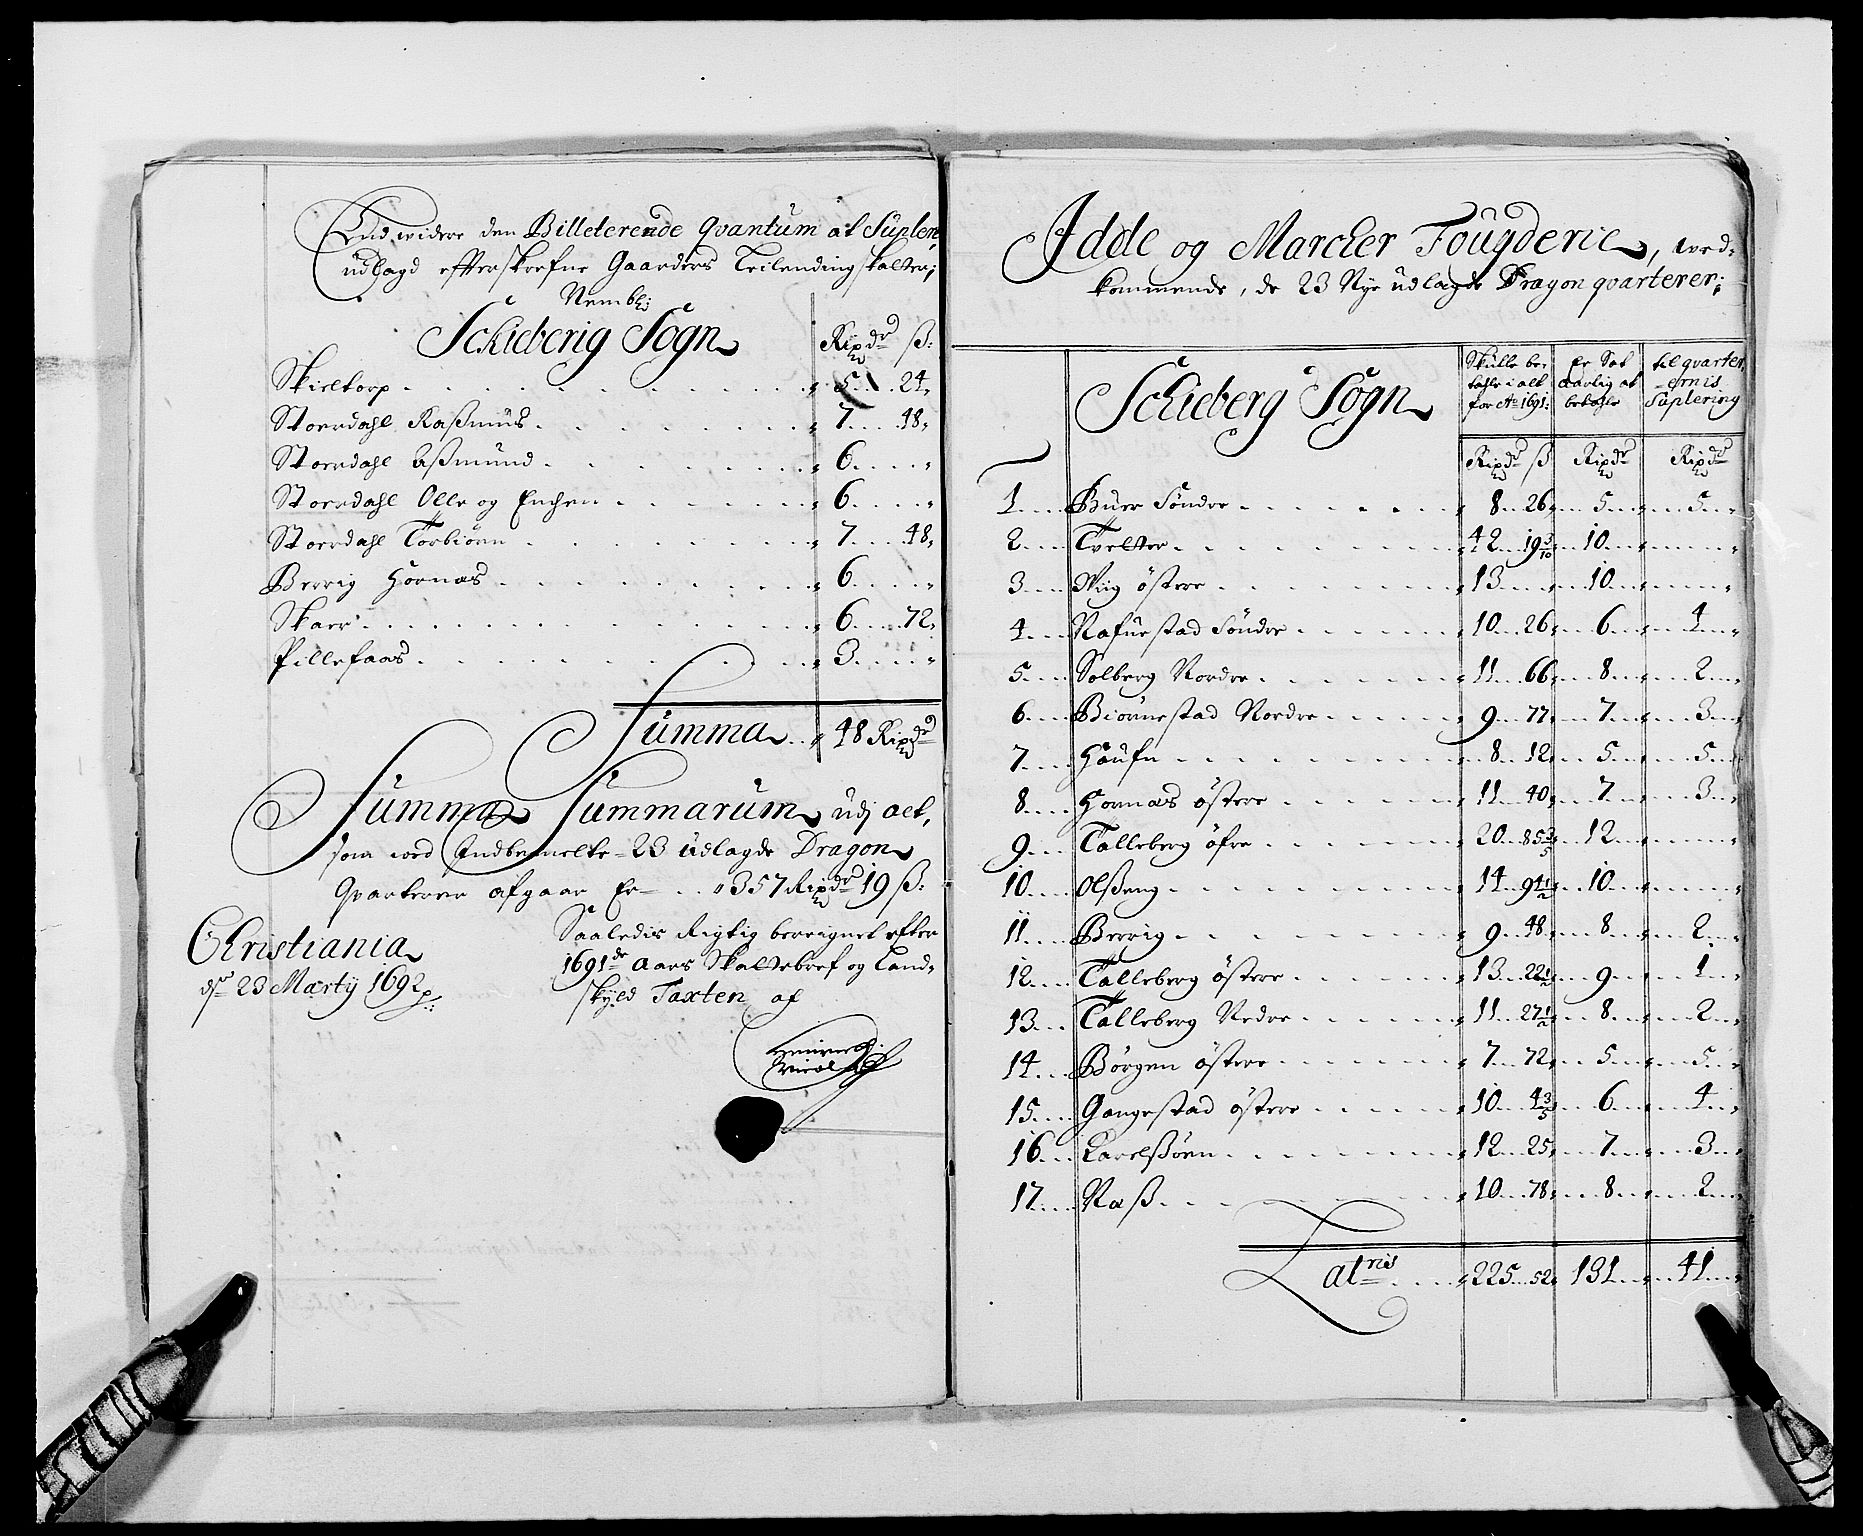 End widere den Billeterende Qvantum at Süpler
udlagd effterskrefne Gaarders Leilendingskatter;
Nembl:
Schieberig Sogn
Rixdr ß:
Skieltorp . . . 5 . . 24
Stordahl Raßmüs . . . 7 . . 48
Stordahl Aßmünd . . . 6
Stordahl Olle og Enchen . . . 6
Stordahl Torbiörn . . . 7 . . 48
Berrig Hornæs . . . 6
Skaer . . . 6 . . 72
Pillefaas . . . 3
Summa . . 48 Rixdr
Summa Summarum udj alt,
som wed Indbemelte 23 üdlagde Dragon
Qvarterer afgaar Er . . 357 Rixdr 19 ß:
Christiania
dr 23 Martij 1692
Saaledis Rigtig beregnet efter
1691de Aars Skattebref og Land-
skyld Taxten af
Idde og Marcher Fougderie, wed-
kommende, de 23 Nye üdlagde Dragon qvarterer;
Schieberg Sogn
Skülle be-
tahle i alt
for Ao 1691:
Er Sat
aarlig at
betahle
til qvarter-
ernis
Süplering
Rixdr ß Rixdr Rixdr
1 Büer Söndre . . . 8 . . 26 . . 5 . . 5
2 Tvetter . . . 42 . . 19 3/10 . . 10
3 Wiig östere . . . 13 . . 10
4 Nafüestad Söndre . . . 10 . . 26 . . 6 . . 4
5 Solberg Nordre . . . 11 . . 66 . . 8 . . 2
6 Biörnestad Nordre . . . 9 . . 77 . . 7 . . 3
7 Haüfn . . . 8 . . 12 . . 5 . . 5
8 Hornæs östere . . . 11 . . 40 . . 7 . . 3
9 Talleberg öfre . . . 20 . . 85 3/5 . . 12
10 Olßeng . . . 14 . . 94 1/2 . . 10
11 Berrig . . . 9 . . 48 . . 8 . . 2
12 Talleberg östere . . . 13 . . 22 1/2 . . 9 . . 1
13 Talleberg Nedre . . . 11 . . 27 1/2 . . 8 . . 2
14 Börgen östere . . . 7 . . 72 . . 5 . . 5
15 Gangestad östere . . . 10 . . 4 3/5 . . 6 . . 4
16 Karlsßöen . . . 12 . . 25 . . 7 . . 3
17 Naß . . . 10 . . 78 . . 8 . . 2
Latris . . . 225 . . 52 . . 131 . . 41